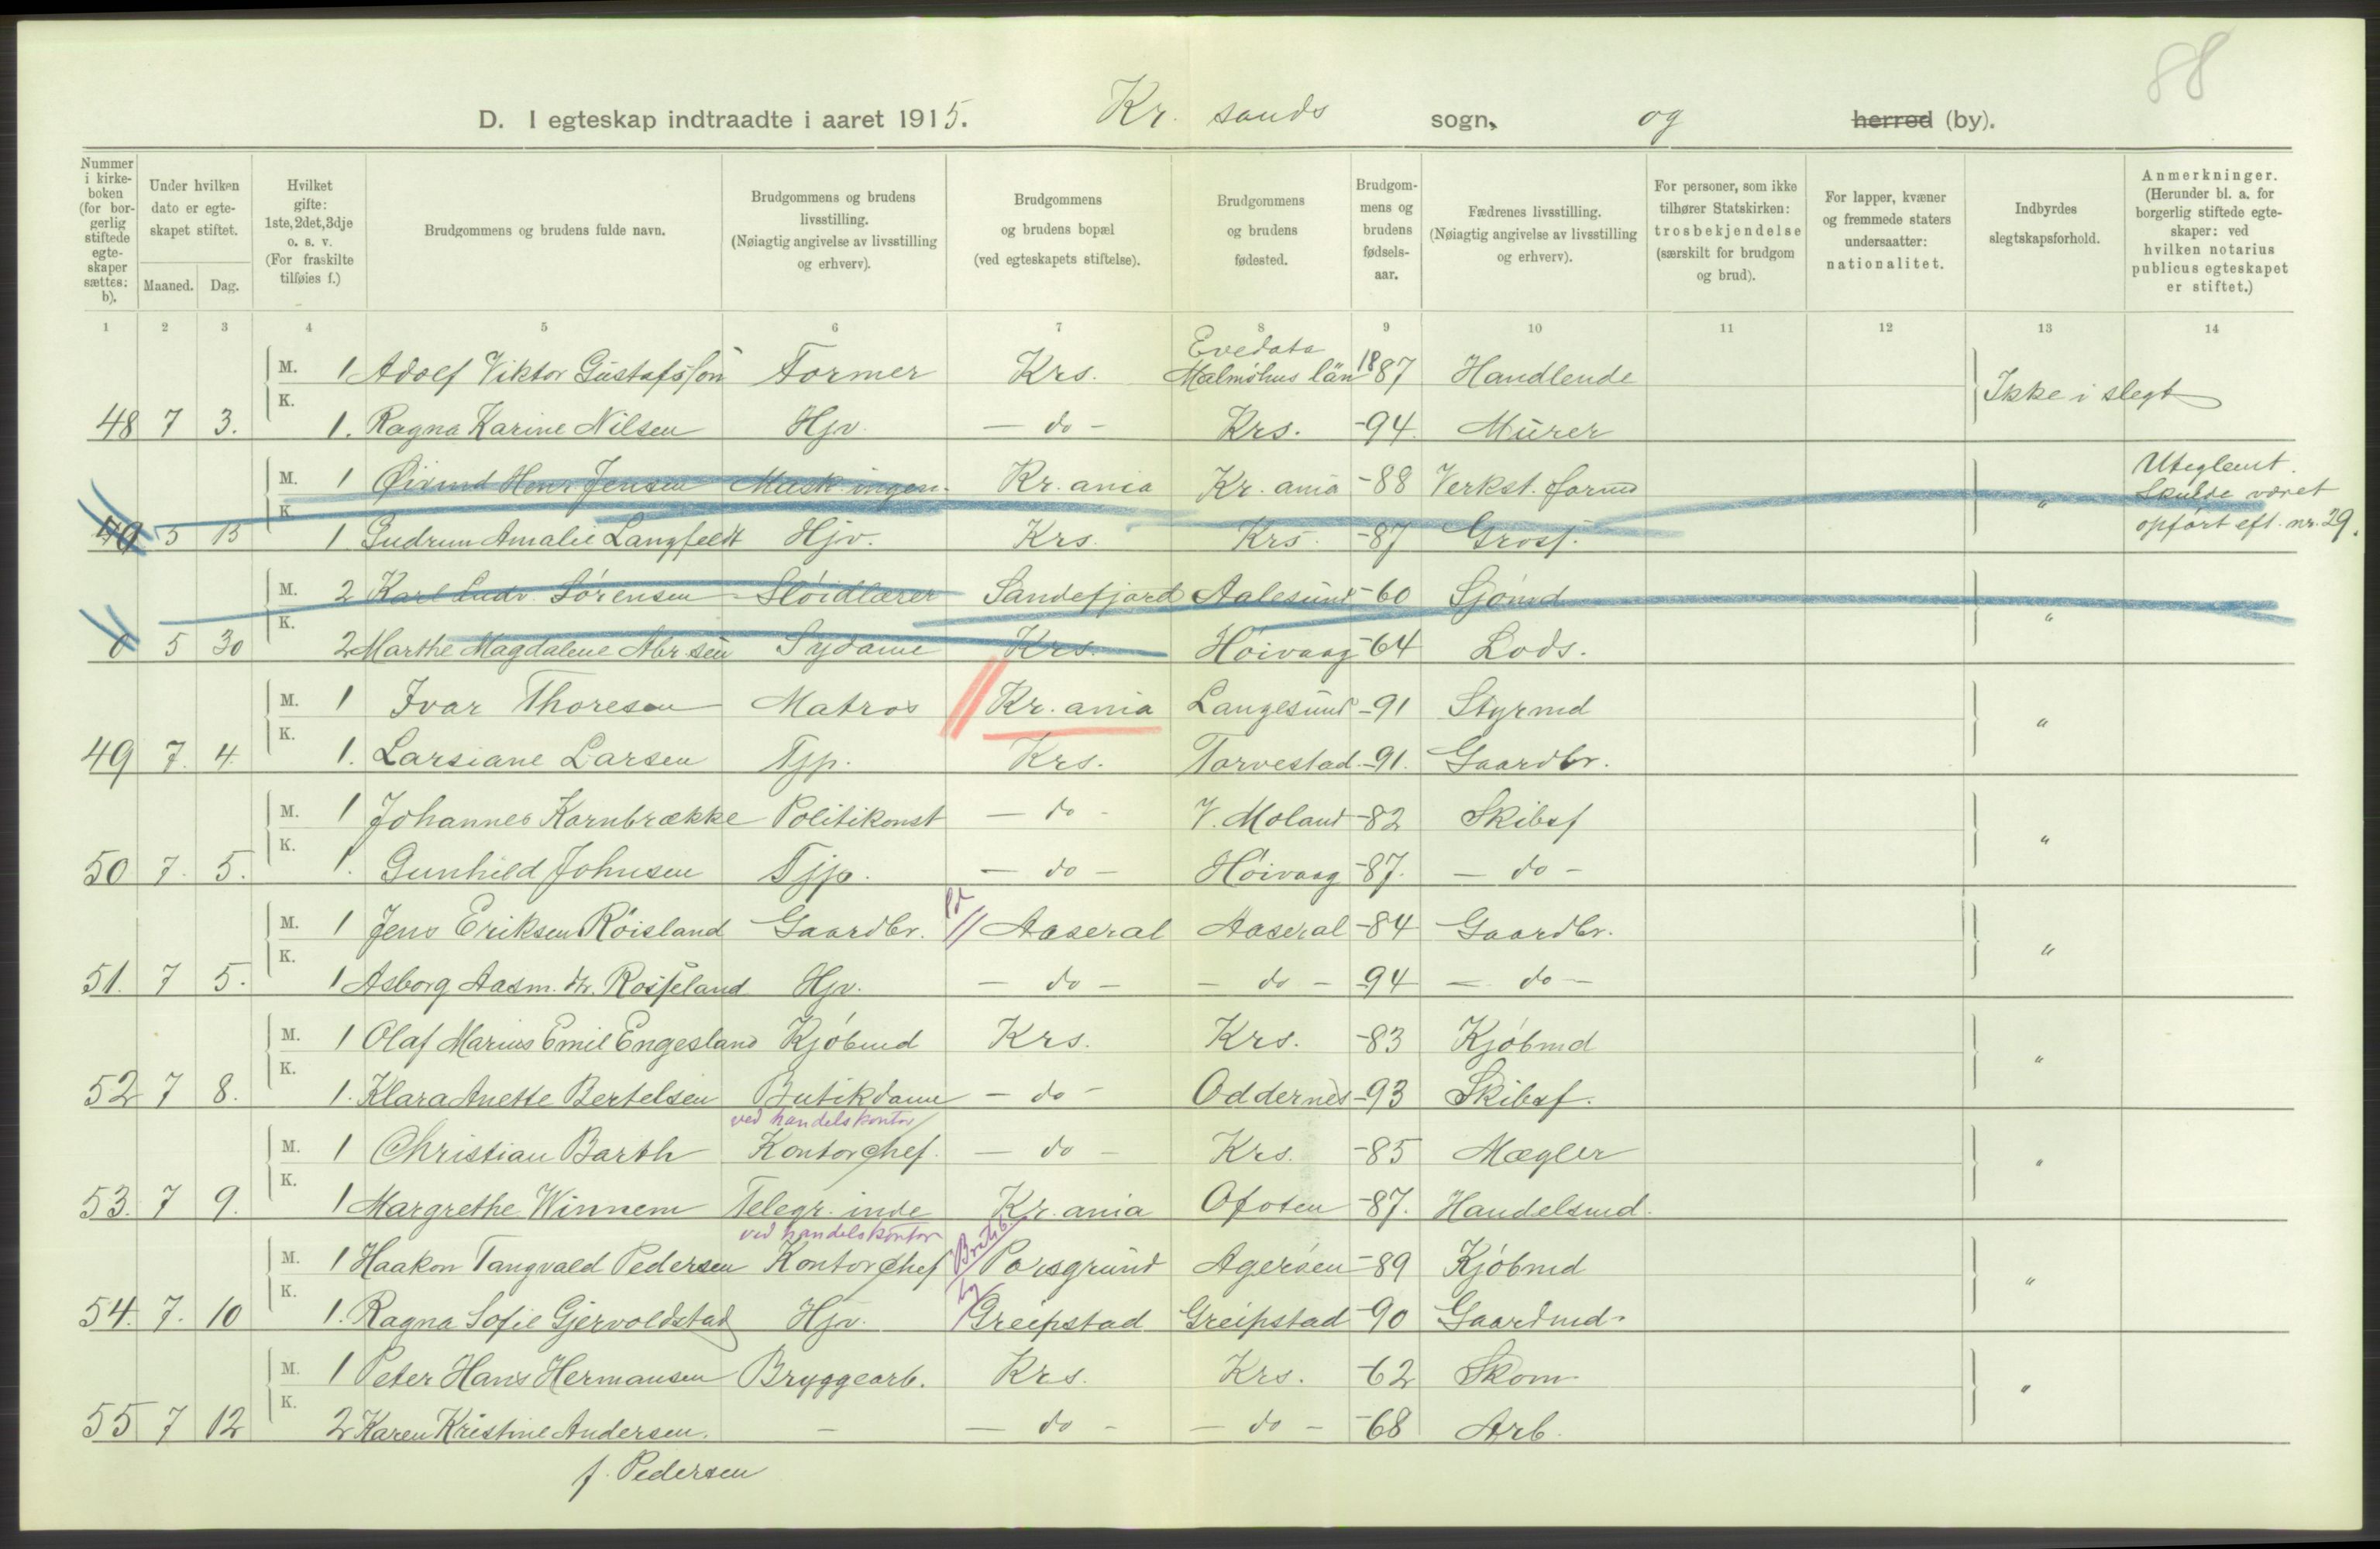 88
D. I egteskap indtraadte i aaret 1915. Kr. sands sogn, og herred (by).
Nummer i kirke-boken (for bor-gerlig stiftede egte-skaper sættes: b).
Under hvilken dato er egte-skapet stiftet.
Maaned. Dag.
Hvilket gifte: 1ste, 2det, 3dje o. s. v. (For fraskilte tilføies f.)
Brudgommens og brudens fulde navn.
Brudgommens og brudens livsstilling. (Nøiagtig angivelse av livsstilling og erhverv).
Brudgommens og brudens bopæl (ved egteskapets stiftelse).
Brudgommens og brudens fødested.
Brudgom-mens og brudens fødsels-aar.
Fædrenes livsstilling. (Nøiagtig angivelse av livsstilling og erhverv).
For personer, som ikke tilhører Statskirken: trosbekjendelse (særskilt for brudgom og brud).
For lapper, kvæner og fremmede staters undersaatter: nationalitet.
Indbyrdes slegtskapsforhold.
Anmerkninger. (Herunder bl. a. for borgerlig stiftede egte-skaper: ved hvilken notarius publicus egteskapet er stiftet.)
1 2 3 4 5 6 7 8 9 10 11 12 13 14
M. 1 Adolf Viktor Gustafsson Former Krs. Malmöhus län 1887 Handlende Ikke i slegt
48 7 3. K. 1. Ragna Karine Nilsen Hjv. - do - Krs. -94. Murer
M. 1 Øivind Henr Jensen Mask. ingen. Kr. ania Kr. ania -88 Verkst. formd " Uteglemt. Skulde været
49 5 13 K. 1 Gudrun Amalie Langfeldt Hjv. Krs. Krs. -87 Gross. opført eft. nr. 29.
M. 2 Karl Ludv. Sørensen Sløidlærer Sandefjord Aalesund -60 Sjømd "
0 5 30 K. 2 Marthe Magdalene Abr.sen Sydame Krs. Høivaag -64 Lods.
M. 1 Ivar Thoresen Matros // Kr. ania Langesund -91 Styrmd "
49 7. 4. K. 1. Larsiane Larsen Tjp. Krs. Torvestad -91. Gaardbr.
M. 1 Johannes Kornbrække Politikonst - do - V. Moland -82 Skibsf "
50 7. 5. K. 1. Gunhild Johnsen Tjp. - do - Høivaag -87. - do -
M. 1 Jens Eriksen Røisland Gaardbr. // Aaseral Aaseral -84 Gaardbr. "
51. 7 5. K. 1 Asborg Aasm. dtr. Røisland Hjv. - do - - do - -94 - do -
M. 1 Olaf Marius Emil Engesland Kjøbmd Krs. Krs. -83 Kjøbmd "
52 7 8. K. 1. Klara Anette Bertelsen Butikdame - do - Oddernes -93 Skibsf.
ved handelskontor
M. 1 Christian Barth Kontorchef. - do - Krs. -85 Mægler "
53. 7 9. K. 1 Margrethe Winnem Telegr. inde Kr. ania Ofoten -87. Handelsmd.
ved handelskontor
M. 1 Haakon Tangvald Pedersen Kontorchef Porsgrund Agerøen -89 Kjøbmd "
54. 7. 10 K. 1. Ragna Sofie Gjervoldstad Hjv. Greipstad Greipstad -90 Gaardmd.
M. 1 Peter Hans Hermansen Bryggearb. Krs. Krs. -62 Skom "
55 7 12 K. 2 Karen Kristine Andersen. - - do - - do - -68 Arb.
f. Pedersen